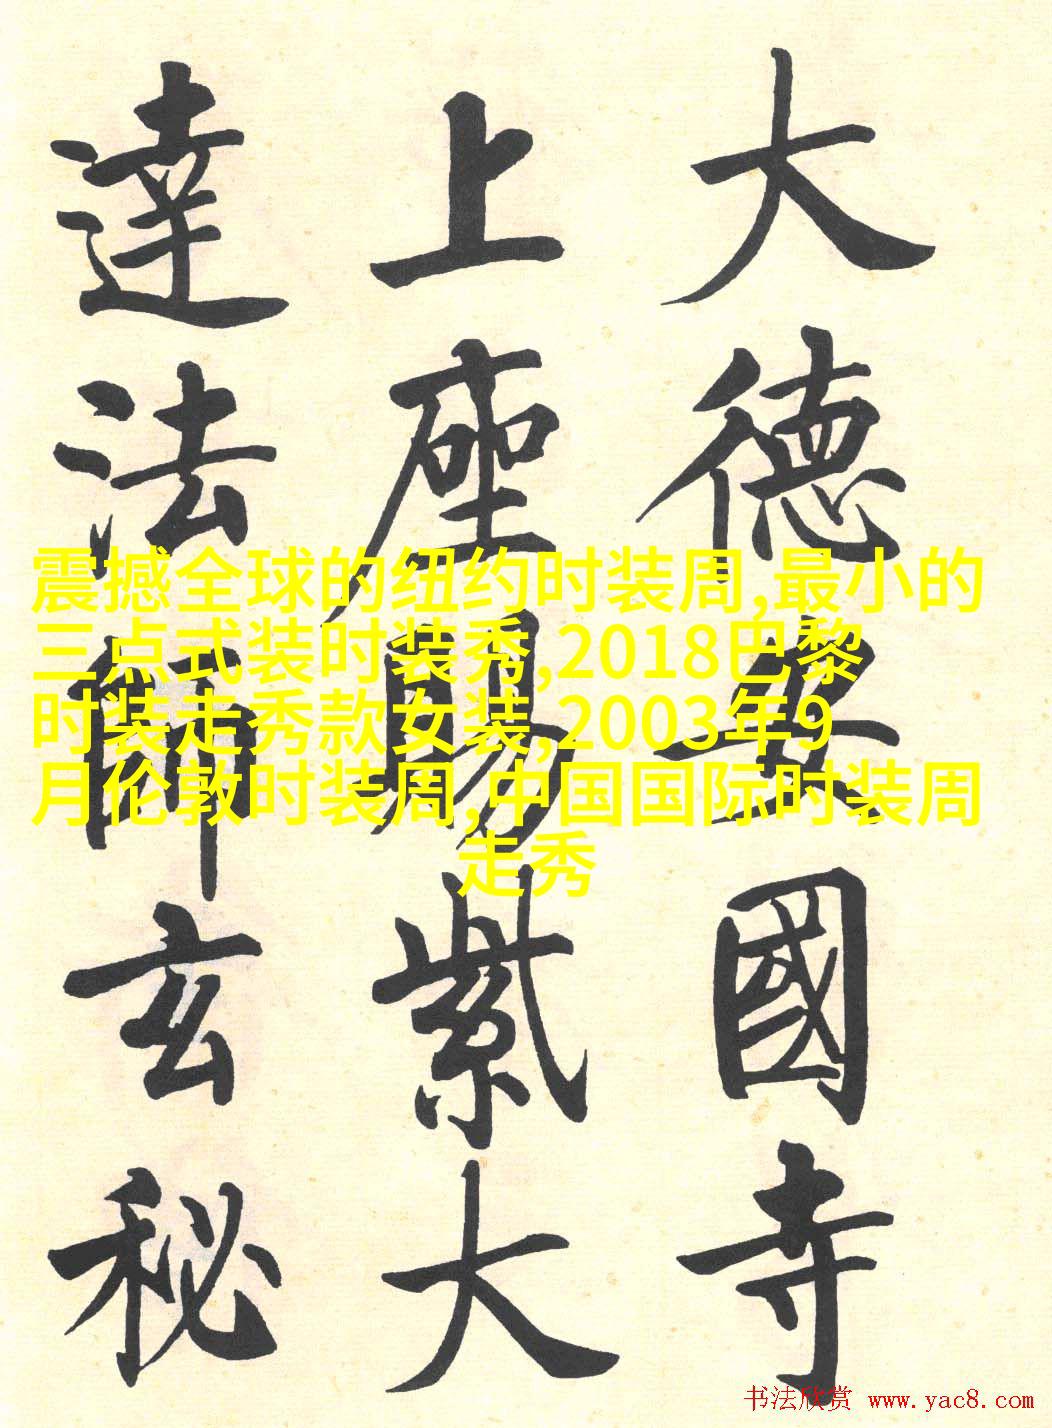 大德安國寺
上座賜紫大
達法師玄秘
震撼全球的纽约时装周,最小的
三点式装时装秀,2018巴黎
时装走秀款女装,2003年9
月伦敦时装周,中国国际时装周
走秀
书法欣赏 www.yac8.com